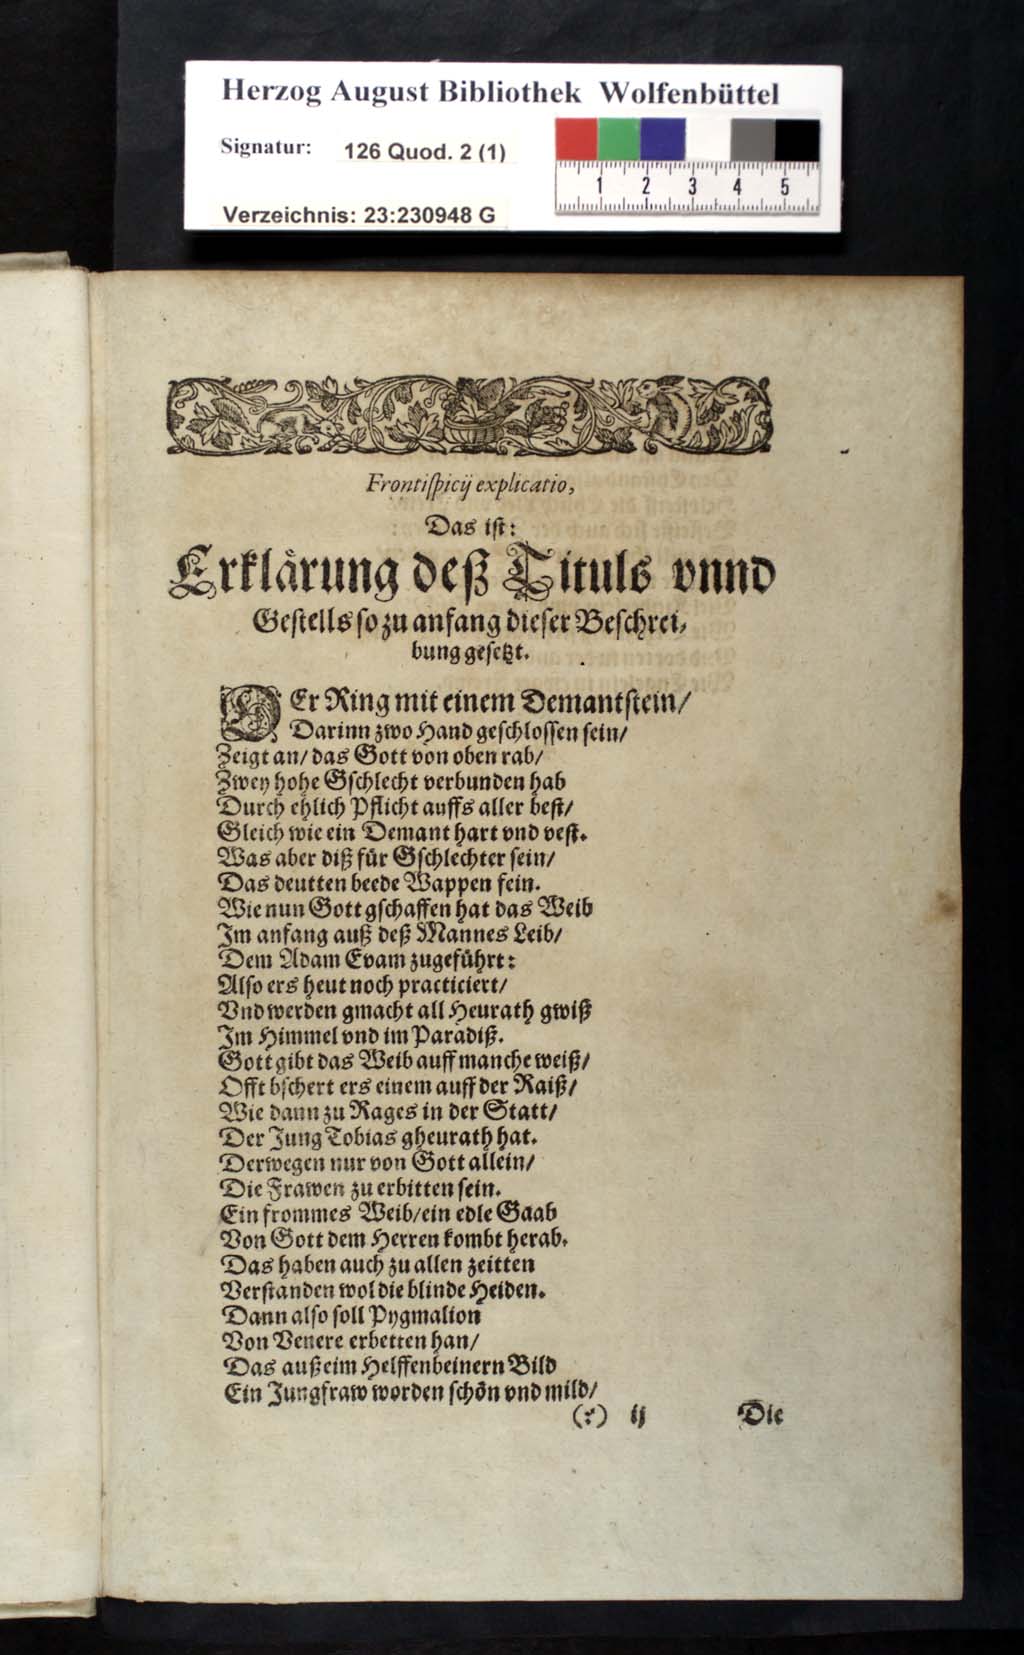 Herzog August Bibliothek Wolfenbüttel
Signatur: 126 Quod. 2 (1)
1 2 3 4 5
Verzeichnis: 23:230948 G
Frontiſpicij explicatio,
Das iſt:
Erklårung deß Tituls vnnd
Geſtells ſo zu anfang dieſer Beſchrei-
bung geſetzt.
DEr Ring mit einem Demantſtein/
Darinn zwo Hand geſchloſſen ſein/
Zeigt an/ das Gott von oben rab/
Zwey hohe Gſchlecht verbunden hab
Durch ehlich Pflicht auffs aller beſt/
Gleich wie ein Demant hart vnd veſt.
Was aber diß für Gſchlechter ſein/
Das deutten beede Wappen fein.
Wie nun Gott gſchaffen hat das Weib
Im anfang auß deß Mannes Leib/
Dem Adam Evam zugeführt:
Alſo ers heut noch practiciert/
Vnd werden gmacht all Heurath gwiß
Im Himmel vnd im Paradiß.
Gott gibt das Weib auff manche weiß/
Offt bſchert ers einem auff der Raiß/
Wie dann zu Rages in der Statt/
Der Jung Tobias gheurath hat.
Derwegen nur von Gott allein/
Die Frawen zu erbitten ſein.
Ein frommes Weib/ ein edle Gaab
Von Gott dem Herren kombt herab.
Das haben auch zu allen zeitten
Verſtanden wol die blinde Heiden.
Dann alſo ſoll Pygmalion
Von Venere erbetten han/
Das auß eim Helffenbeinern Bild
Ein Jungfraw worden ſchön vnd mild/
(:) ij Die